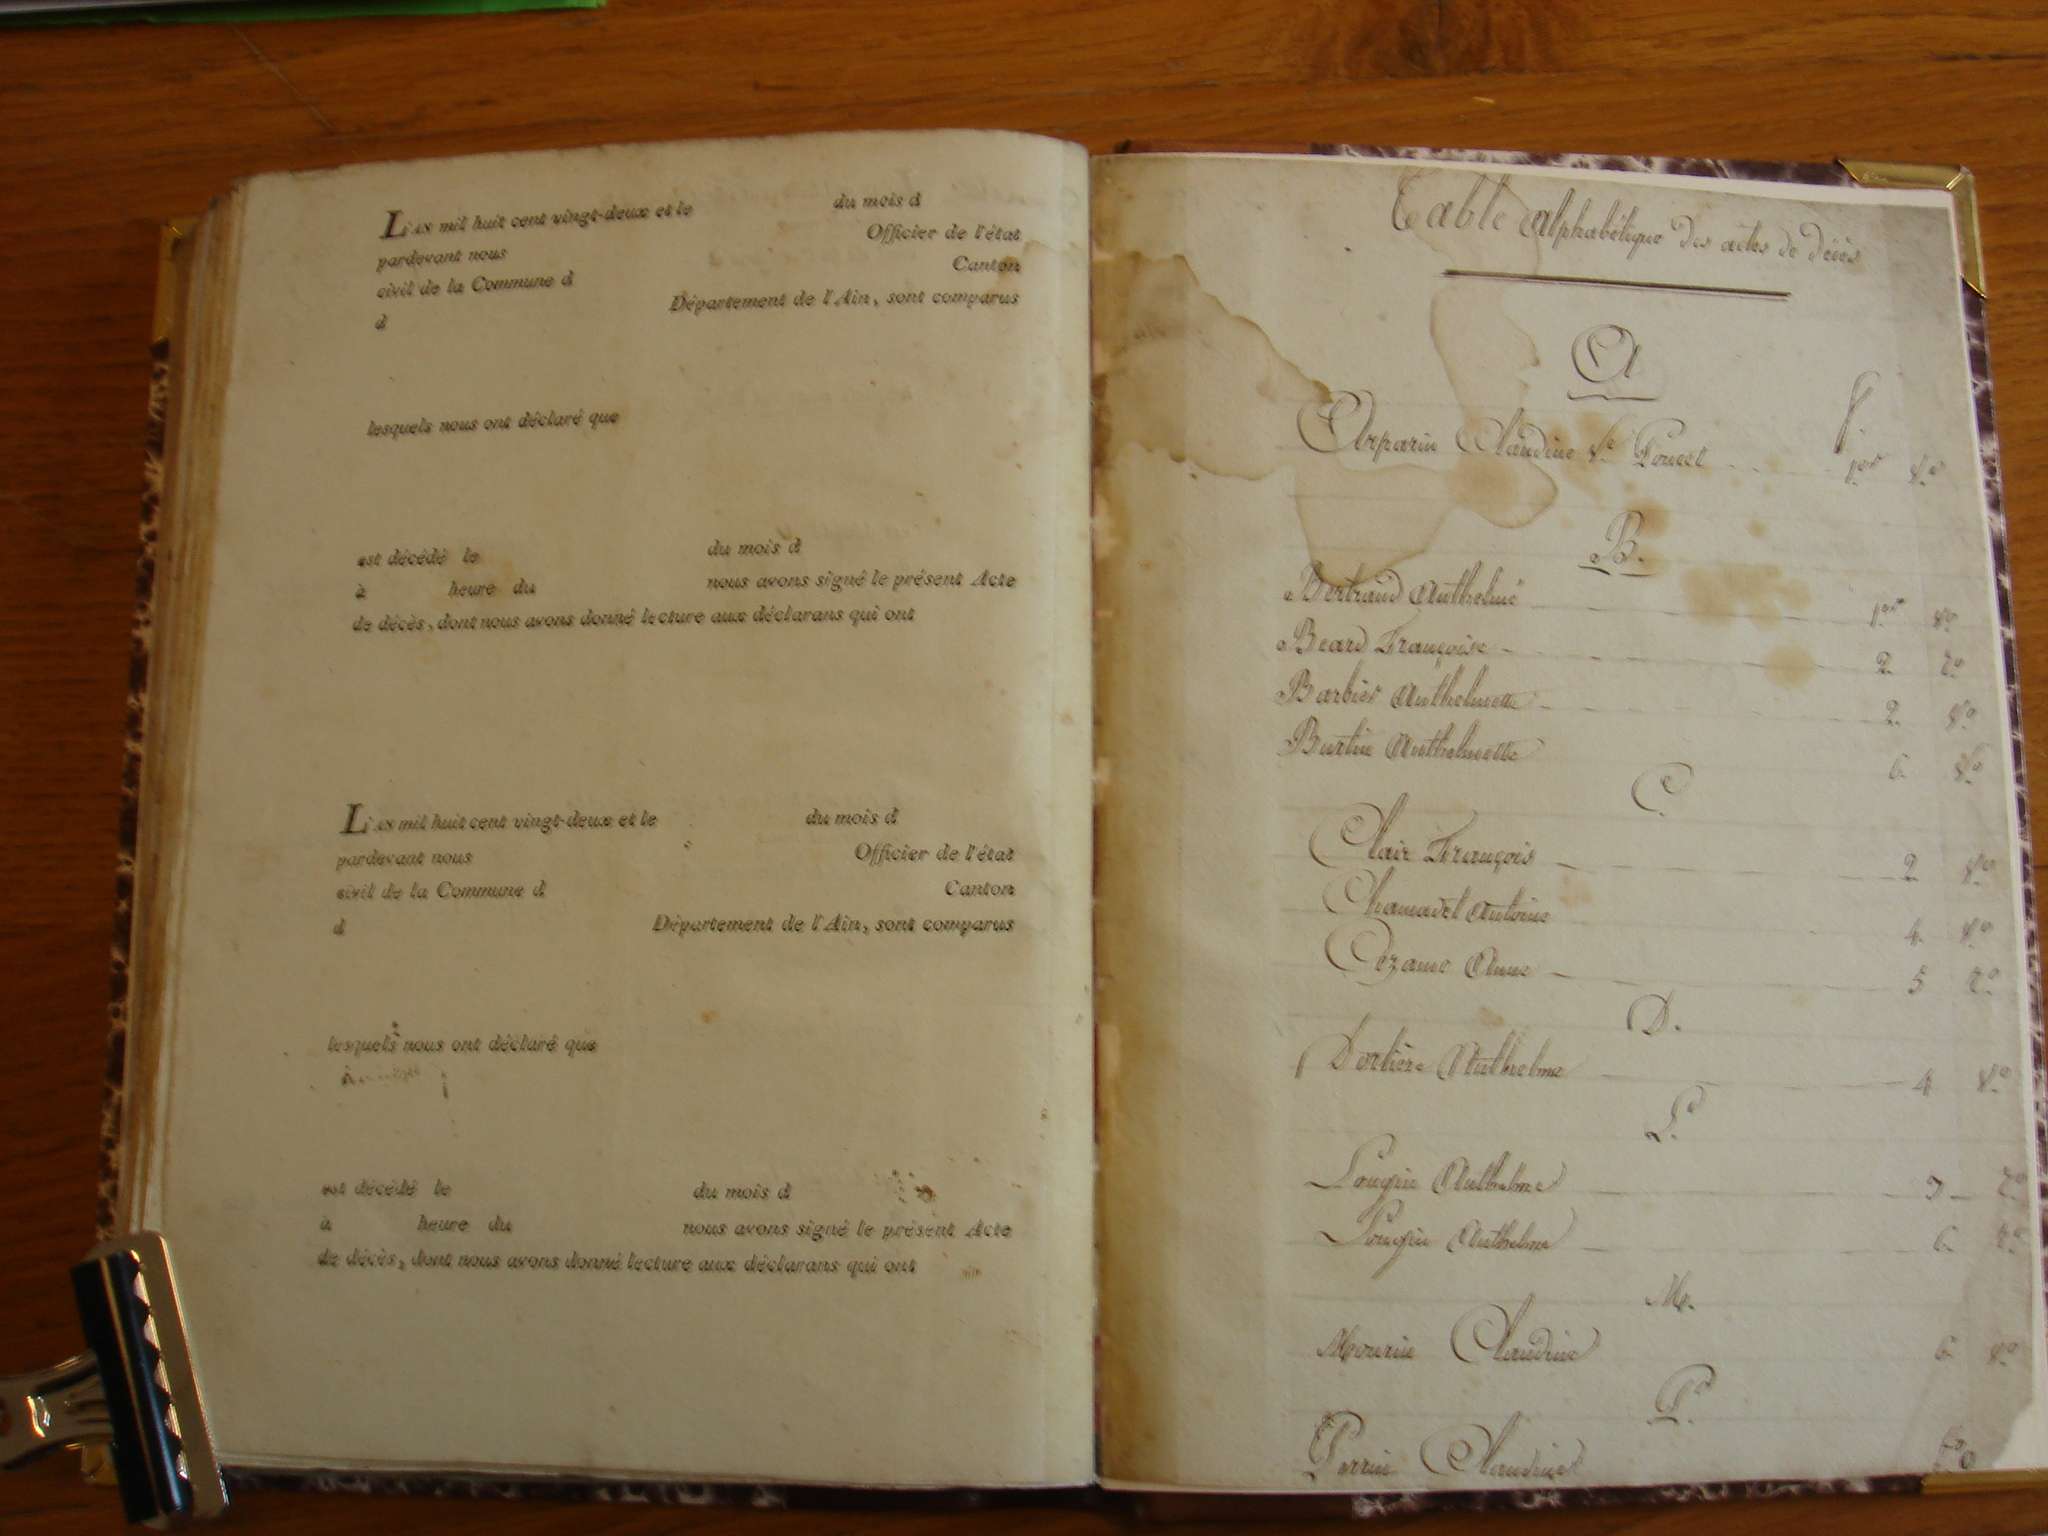 L'AN mil huit cent vingt-deux et le du mois d
pardevant nous Officier de l'état
civil de la Commune d Canton
d Département de l'Ain, sont comparus
lesquels nous ont déclaré que
est décédé le du mois d
à heure du nous avons signé le présent Acte
de décès, dont nous avons donné lecture aux déclarans qui ont
L'AN mil huit cent vingt-deux et le du mois d
pardevant nous Officier de l'état
civil de la Commune d Canton
d Département de l'Ain, sont comparus
lesquels nous ont déclaré que
est décédé le du mois d
à heure du nous avons signé le présent Acte
de décès, dont nous avons donné lecture aux déclarans qui ont
Table Alphabétique des actes de décès
A
Arparin Claudine Ve Poncet 1er Vo
B.
Bertrand Anthelme 1er Vo
Beard Françoise 2 Ro
Barbier Anthelmette 2 Vo
Burtin Anthelmette 6 Vo
C.
Clair François 2 Vo
Chamadel Antoine 4 Vo
Cezane Anne 5 Ro
D.
Dortiere Anthelme 4 Vo
L.
Anthelme 3 Ro
Anthelme 6
M.
Claudine 6 Vo
P.
Perrin Claudine